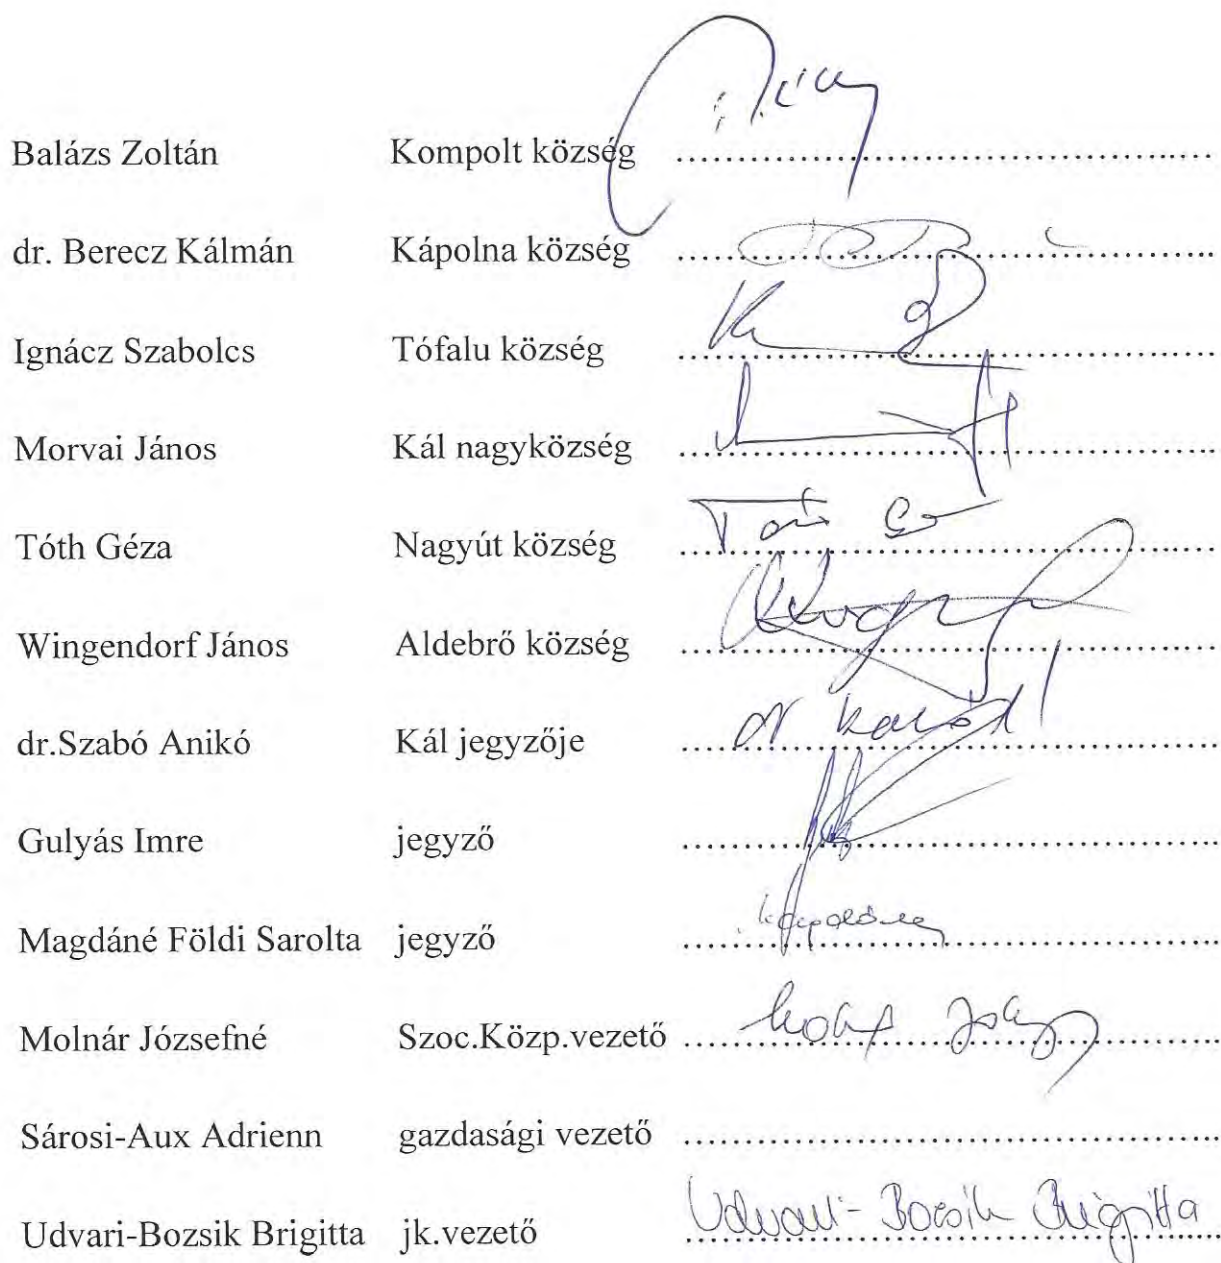 Balázs Zoltán Kompolt község
dr. Berecz Kálmán Kápolna község
Ignácz Szabolcs Tófalu község
Morvai János Kál nagyközség
Tóth Géza Nagyút község
Wingendorf János Aldebrő község
dr.Szabó Anikó Kál jegyzője
Gulyás Imre jegyző
Magdáné Földi Sarolta jegyző
Molnár Józsefné Szoc.Közp.vezető
Sárosi-Aux Adrienn gazdasági vezető
Udvari-Bozsik Brigitta jk.vezető Udvari-Bozsik Brigitta